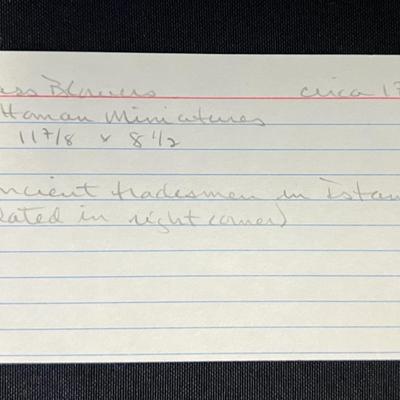 ass Blowers circa 17
ttoman Miniatures
11 7/8 x 8 1/2
ncient tradesmen in Istan
dated in right corner)